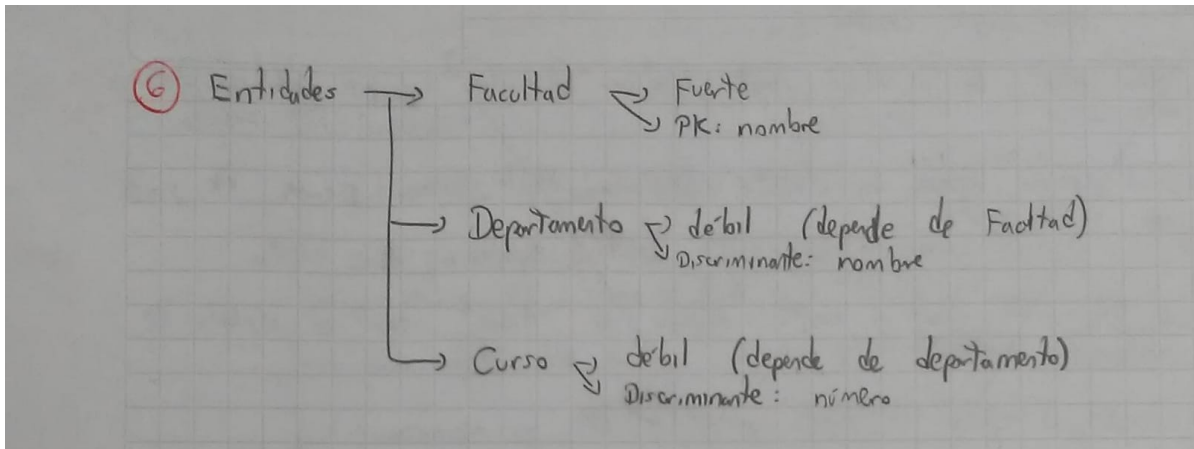 6 Entidades → Facultad → Fuerte
→ PK: nombre
→ Departamento → débil (depende de Facultad)
→ Discriminante: nombre
→ Curso → débil (depende de departamento)
→ Discriminante: número